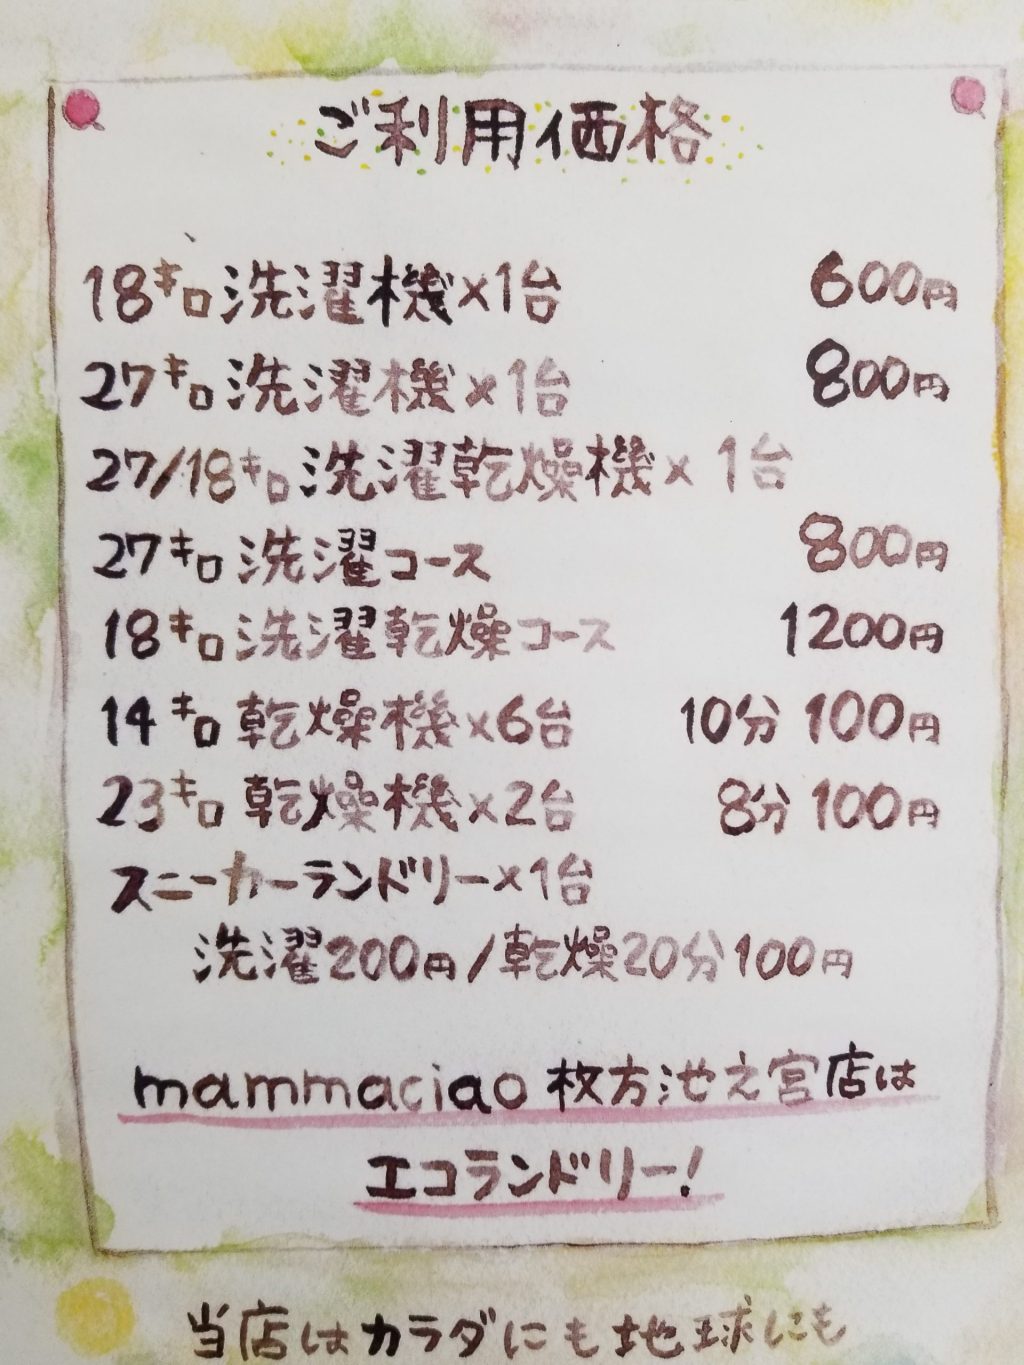 ご利用価格
18キロ洗濯機×1台 600円
27キロ洗濯機×1台 800円
27/18キロ洗濯乾燥機×1台
27キロ洗濯コース 800円
18キロ洗濯乾燥コース 1200円
14キロ乾燥機×6台 10分 100円
23キロ乾燥機×2台 8分 100円
スニーカーランドリー×1台
洗濯200円/乾燥20分100円
mammaciao 枚方池之宮店は
エコランドリー!
当店はカラダにも地球にも